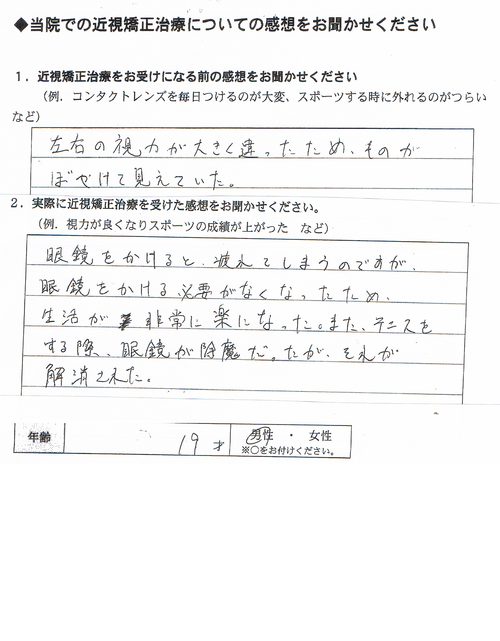 ◆当院での近視矯正治療についての感想をお聞かせください
１．近視矯正治療をお受けになる前の感想をお聞かせください
（例．コンタクトレンズを毎日つけるのが大変、スポーツする時に外れるのがつらい
など）
左右の視力が大きく違ったため、ものが
ぼやけて見えていた。
２．実際に近視矯正治療を受けた感想をお聞かせください。
（例．視力が良くなりスポーツの成績が上がった　など）
眼鏡をかけると、疲れてしまうのですが、
眼鏡をかける必要がなくなったため、
生活が非常に楽になった。また、テニスを
する際、眼鏡が除魔だったが、それが
解消された。
年齢　19才　男性　・　女性
※○をお付けください。